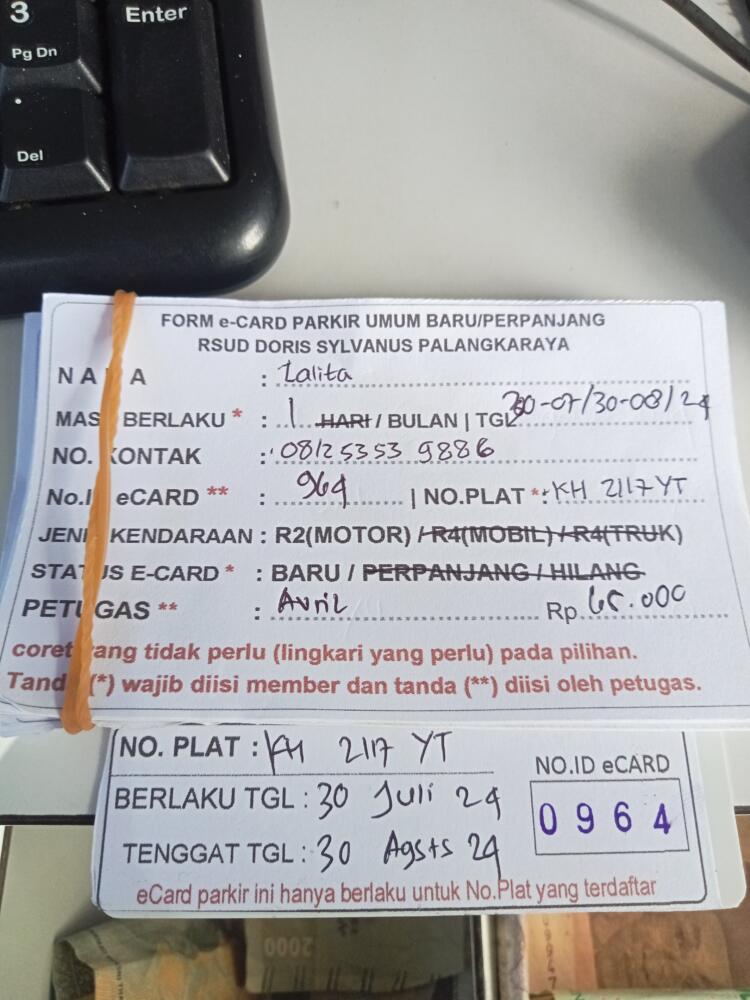 3
Pg Dn
Enter
.
Del
FORM e-CARD PARKIR UMUM BARU/PERPANJANG
RSUD DORIS SYLVANUS PALANGKARAYA
NA A : Lalita
MAS BERLAKU * : 1 HARI / BULAN | TGL 30-07/30-08/24
NO. KONTAK : 08125353 9886
No.I eCARD ** : 964 | NO.PLAT *: KH 2117 YT
JENI KENDARAAN : R2(MOTOR) / R4(MOBIL) / R4(TRUK)
STATUS E-CARD * : BARU / PERPANJANG / HILANG
PETUGAS ** : Avril Rp. 65.000
coret yang tidak perlu (lingkari yang perlu) pada pilihan.
Tand (*) wajib diisi member dan tanda (**) diisi oleh petugas.
NO. PLAT : KH 2117 YT
NO.ID eCARD
BERLAKU TGL : 30 Juli 24
0964
TENGGAT TGL : 30 Agsts 24
eCard parkir ini hanya berlaku untuk No.Plat yang terdaftar
2000